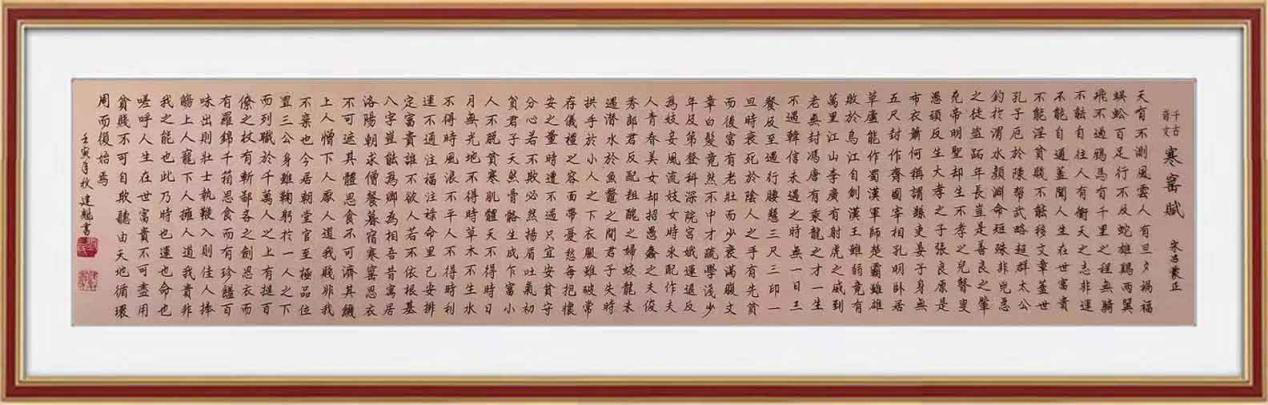 千古
奇文
寒窰賦
宋吕蒙正
天有不測風雲人有旦夕禍福
蜈蚣百足行不及蛇雄鷄兩翼
飛不過鴉馬有千里之程無騎
不能自往人有衝天之志非運
不能自通蓋聞人生在世富貴
不能淫貧賤不能移文章蓋世
孔子厄於陳幫武略超群太公
釣於渭水顏淵命短殊非兇惡
之徒盜跖年長豈是善良之輩
堯帝明聖却生不孝之兒瞽叟
愚頑反生大孝之子張良原是
布衣蕭何稱謂縣吏晏子身無
五尺封作齊國宰相孔明卧居
草廬能作蜀漢軍師楚霸雖雄
敗於烏江自刎漢王雖弱竟有
萬里江山李廣有射虎之威到
老無封馮唐有乘龍之才一生
不遇韓信未遇之時無一日三
餐及至遇行腰懸三尺三印一
旦時衰死於陰人之手有先貧
而後富有老壯而少衰滿腹文
章白髮竟然不中才疏學淺少
年及第登科深院宮娥運退反
為妓妾風流妓女時來配作夫
人青春美女却招愚蠢之夫俊
秀郎君反配粗醜之婦蛟龍未
遇潛水於魚鱉之間君子失時
拱手於小人之下衣服雖破常
存儀禮之容面帶憂愁每抱懷
安之量時遭不遇只宜安貧守
分心若不欺必然揚眉吐氣初
貧君子天然骨骼生成乍富小
人不脫貧寒肌體天不得時日
月無光地不得時草木不生水
不得時風浪不平人不得時利
運不通注福注祿命里已安排
定富貴誰不欲人若不依根基
八字豈能為卿為相吾昔寓居
洛陽朝求僧餐暮宿寒窰思衣
不可遮其體思食不可濟其饑
上人憎下人厭人道我賤非我
不棄也今居朝堂官至極品位
置三公身雖鞠躬於一人之下
而列職於千萬人之上有撻百
僚之杖有斬鄙吝之劍思衣而
有羅錦千箱思食而有珍饈百
味出則壯士執鞭入則佳人捧
觴上人寵下人擁人道我貴非
我之能也此乃時也運也命也
嗟呼人生在世富貴不可盡用
貧賤不可自欺聽由天地循環
周而復始焉
壬寅年秋建魁書